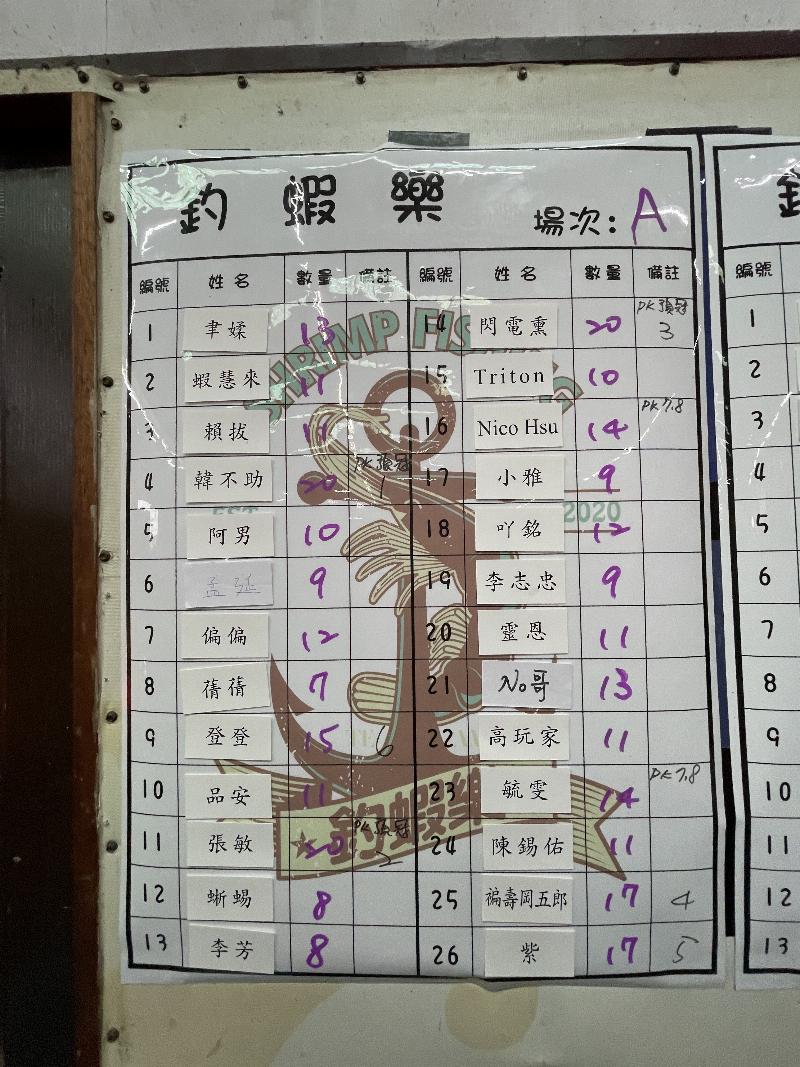 釣 蝦 樂 場次: A
編號 姓名 數量 備註 編號 姓名 數量 備註 編號
1 聿媃 13 14 閃電熏 20 PK 張冠 3 1
2 蝦慧來 15 Triton 10 2
3 賴拔 11 16 Nico Hsu 14 PK 7.8 3
4 韓不助 20 PK 張冠 1 17 小雅 9 4
5 阿男 10 18 吖銘 12 5
6 孟延 9 19 李志忠 9 6
7 偏偏 12 20 靈恩 11 7
8 蒨蒨 7 21 No哥 13 8
9 登登 15 6 22 高玩家 11 9
10 品安 11 23 毓雯 14 PK 7.8 10
11 張敏 20 PK 張冠 2 24 陳錫佑 11 11
12 蜥蜴 8 25 褔壽岡五郎 17 4 12
13 李芳 8 26 紫 17 5 13
SHRIMP FISHING
2020
釣蝦樂